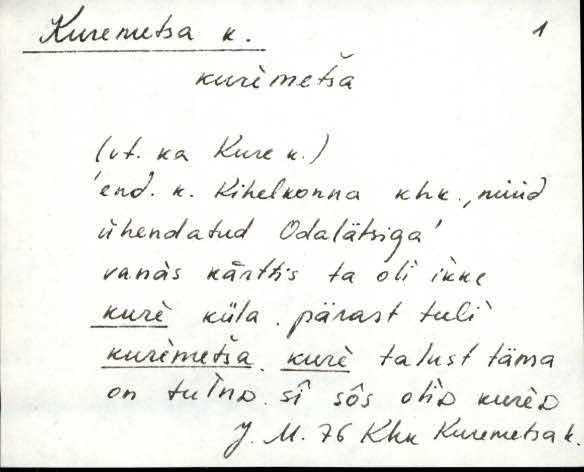 Kuremetsa k. 1
kurèmetša
(vt. ka Kure k.)
'end. k. Kihelkonna khk., nüüd
ühendatud Odalätsiga'
vanàs kàrttis ta oli ikke
kurè küla. pärast tuli
kurèmetša. kurè talust täma
on tulnD. sî sôs oliD kurèD
J. M. 76 Khk Kuremetsa k.